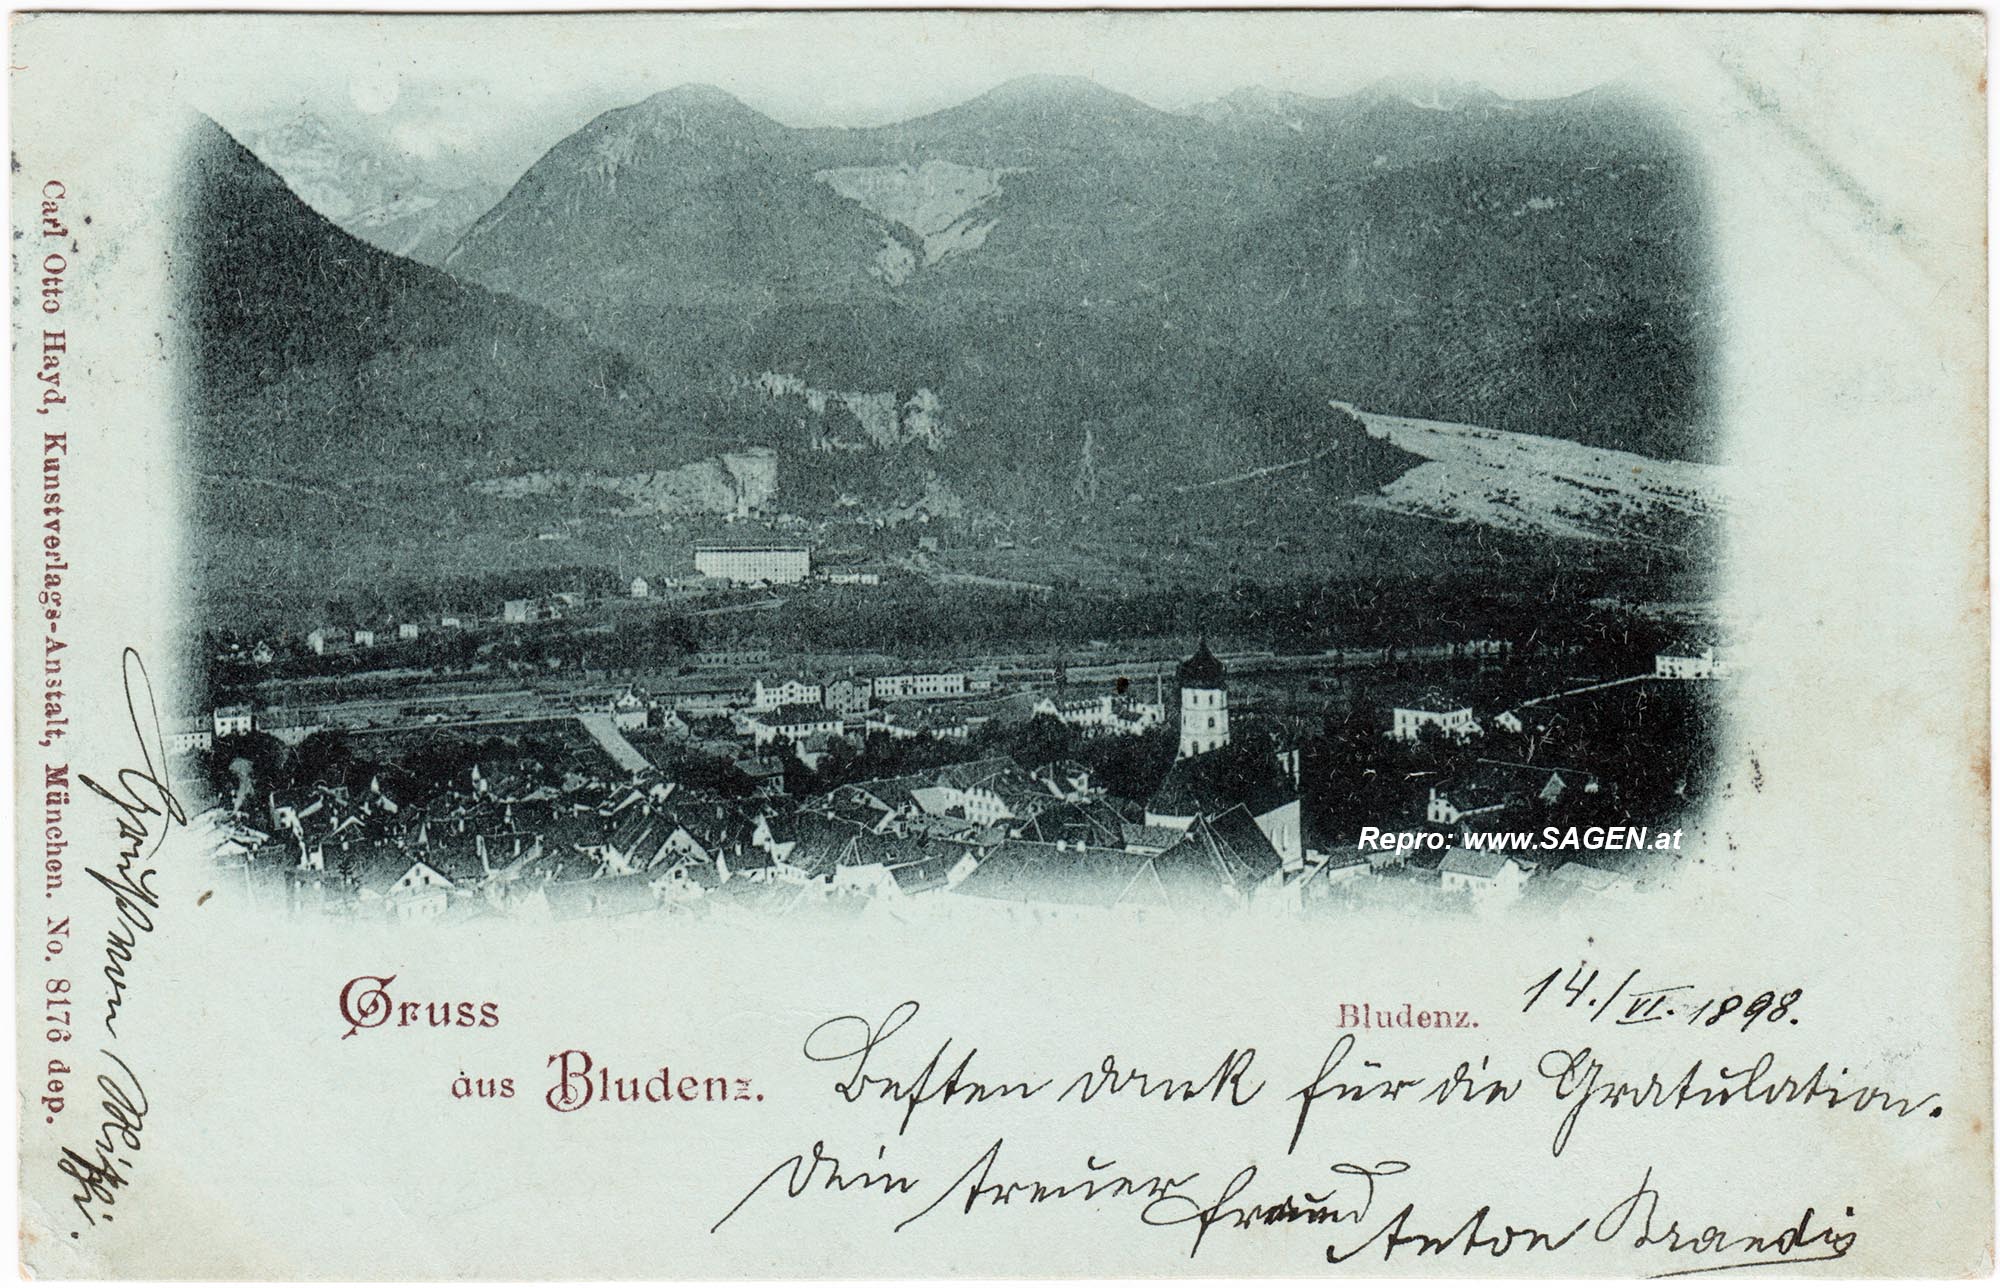 Carl Otto Hayd, Kunstverlags-Anstalt, München. No. 8176 dep.
Repro: www.SAGEN.at
Gruss
aus Bludenz.
Bludenz. 14./VI. 1898.
Besten dank für die Gratulation.
Dein treuer freund Anton